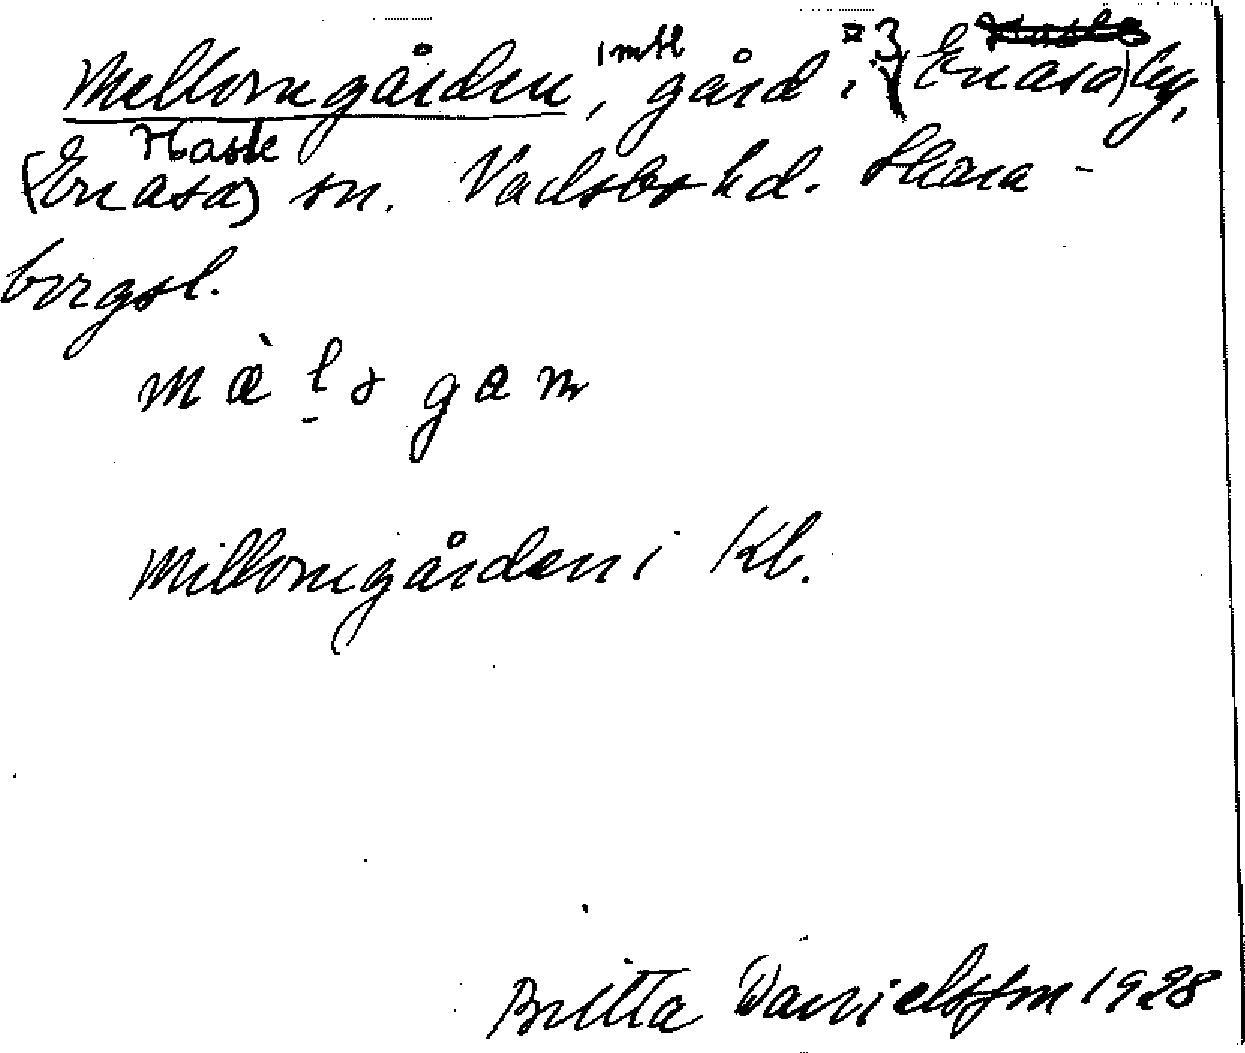 Mellomgården, 1 mtl gård, i (Enåsa) by,
Hassle
(Enåsa) sn. Vadsbo hd. Skara-
borgsl.
mæ̀lɷgan
Mellomgården i Kb.
Britta Danielsson 1928